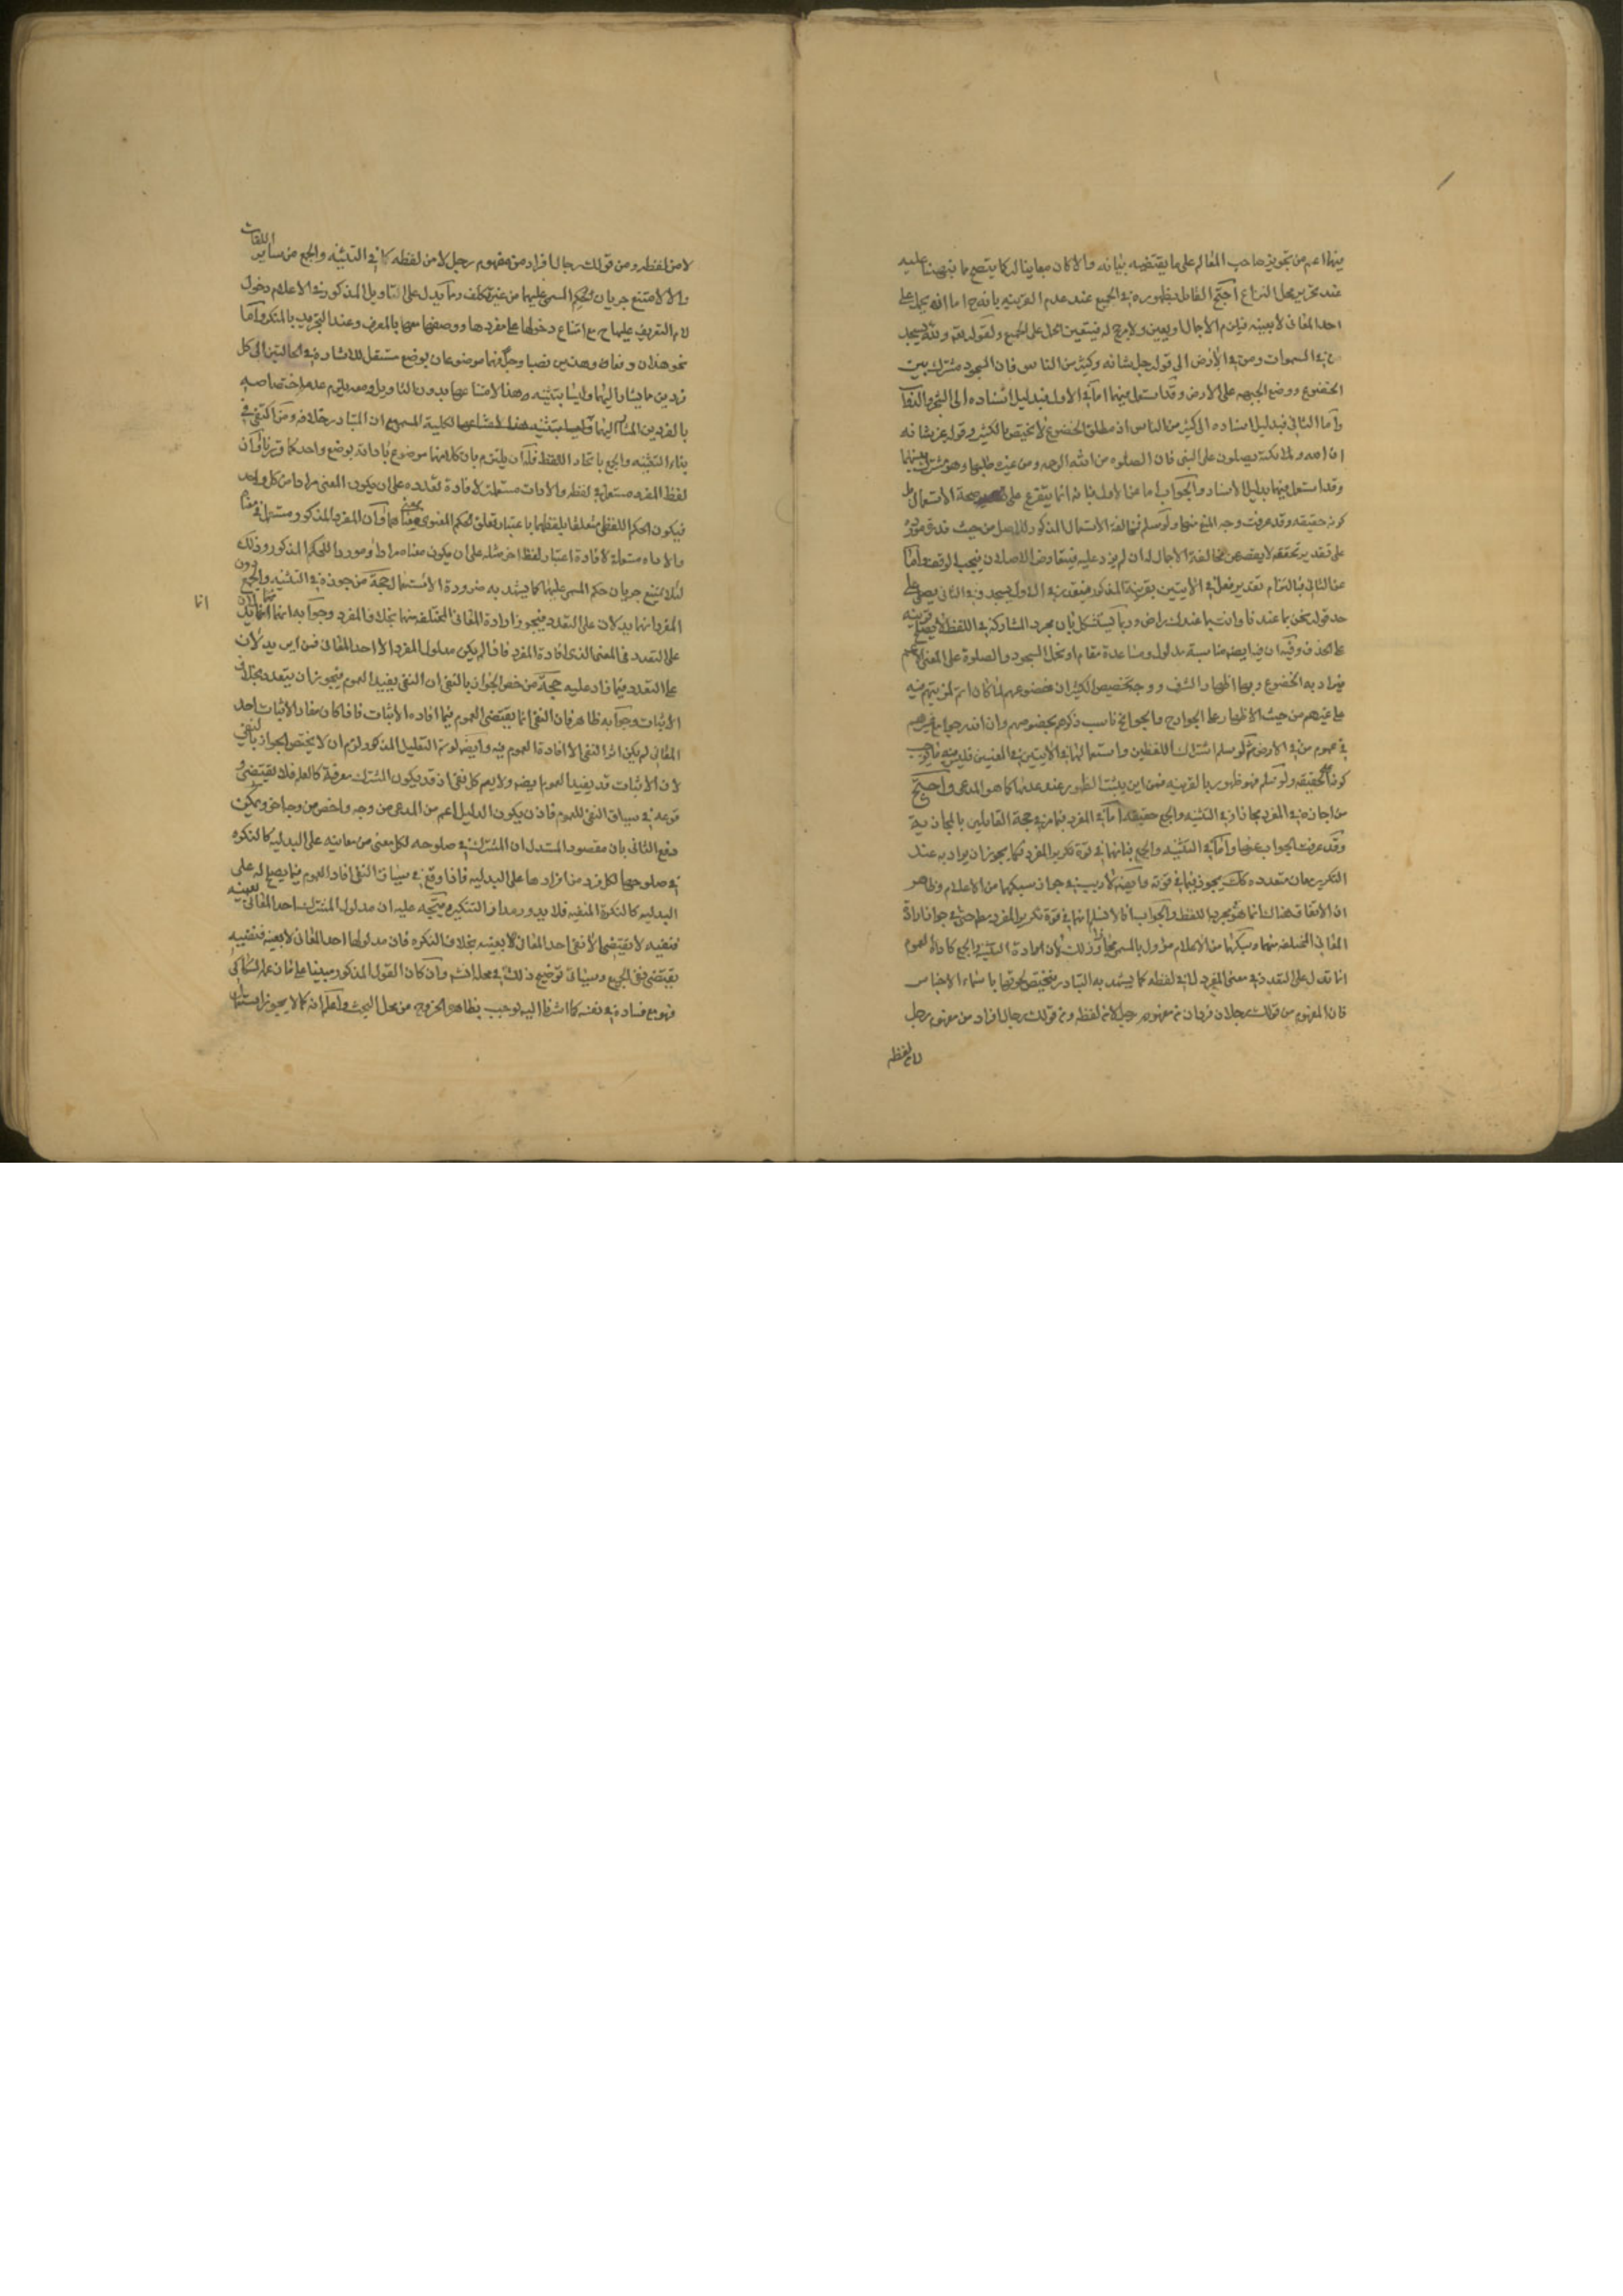 فيهما اعم من تجويز صاحب المعالم على ما يقتضيه بيانه والا كان مباينا له كما يتضح مما نبهنا عليه
عند تحرير محل النزاع احتج القائل بظهوره في الجميع عند عدم القرينة بانه ح اما ان يحمل على
احد المعاني لا بعينه فيلزم الاجمال او بعين ولا مرجح له فيتعين الحمل على الجميع ولقوله تعالى ولله يسجد
من في السموات ومن في الارض الى قوله جل شانه وكثير من الناس فان السجود مشترك بين
الخضوع ووضع الجبهة على الارض وقد استعمل فيهما اما في الاول فبدليل اسناده الى الشجر والدواب
واما الثاني فبدليل اسناده الى كثير من الناس اذ مطلق الخضوع لا يختص بالكثير وقوله عز شانه
ان الله وملائكته يصلون على النبي فان الصلوة من الله الرحمة ومن غيره طلبها وهو مشترك بينهما
وقد استعمل فيهما بدليل الاسناد والجواب اما عن الاول فبانه انما يتفرع على صحة الاستعمال بل
كونه حقيقة وقد عرفت وجه المنع منهما ولو سلم فمخالفة الاستعمال المذكور للاصل من حيث
على تقدير تحققه لا يقصر عن مخالفة الاجمال له ان لم يزد عليه فيتعارض الاصلان فيجب الوقف واما
عن الثاني فبالتزام تقدير فعل في الايتين بقرينة المذكور فيقدر في الاول يسجد وفي الثاني يصلي على
حد قوله نحن بما عندنا وانت بما عندك راض وربما يستشكل بان مجرد المشاركة في اللفظ لا يصلح قرينة
على الحذف وفيه ان فيه ايضا مناسبة مدلول ومساعدة مقام او نحمل السجود والصلوة على المعنى الاعم
فيراد به الخضوع وبها اظهار الشرف ووجه تخصيص الكثير ان خضوعهم لما كان اتم لمزيتهم فيه
على غيرهم من حيث الاظهار على الجوارح والجوانح ناسب ذكرهم بخصوصهم وان اندرجوا مع غيرهم
في عموم من في الارض ثم لو سلم اشتراك اللفظين واستعمالهما في الايتين في المعنيين فليس فيه ما يوجب
كونه الحقيقة ولو سلم فهو ظهور بالقرينة فمن اين يثبت الظهور عند عدمها كما هو المدعى واحتج
من اجازه في المفرد مجازا وفي التثنية والجمع حقيقة اما في المفرد فبما مر في حجة القائلين بالمجازية
وقد عرفت الجواب عنها واما في التثنية والجمع فبانهما في قوة تكرير المفرد فكما يجوز ان يراد به عند
التكرير معان متعدده كك يجوز فيما في قوته وايضا لا ريب في جواز سبكهما من الاعلام وظاهر
ان الاتفاق هنالك انما هو بمجرد اللفظ والجواب انا لا نسلم انهما في قوة تكرير المفرد مطلقا حتى في جواز ارادة
المعاني المختلفة منهما وسبكهما من الاعلام مؤول بالمسمى مجازا وذلك لان اداة التثنية والجمع كاداة العموم
انما تدل على التعدد في معنى المفرد لا في لفظه كما يشهد به التبادر فيختص لحوقها باسماء الاجناس
فان المفهوم من قولك رجلان فردان من مفهوم رجل لا من لفظه ومن قولك رجال افراد من مفهوم رجل
لا من لفظه
لا من لفظه ومن قولك رجال افراد من مفهوم رجل لا من لفظه كما في التثنية والجمع من ساير اللغات
والا لامتنع جريان حكم المسمى عليهما من غير تكلف ومما يدل على التاويل المذكور في الاعلام دخول
لام التعريف عليهما ح مع امتناع دخولها على مفردها ووصفهما معها بالمعرف وعند التجريد بالمنكر واما
نحو هذان وهذين نصبا وجرا فهما موضوعان بوضع مستقل للاشارة في الحالتين الى كل
فردين مما يشار اليهما وليسا بتثنية هذا لامتناعها بدون التاويل ومعه يلزم عدم اختصاصه
بالفردين المشار اليهما
بناء التثنية والجمع باتحاد اللفظ فله ان يلتزم بان كلا منهما موضوع باداته بوضع واحد كما وان
لفظ المفرد مستعمل في لفظه والادات مستعملة لافادة تعدده على ان يكون المعنى مرادا من كل واحد
فيكون الحكم اللفظي متعلقا بلفظهما باعتبار تعلق الحكم المعنوي بمعنى وان المفرد المذكور مستعمل في معناه
والاداة مستعملة لافادة اعتبار لفظ اخر مثله على ان يكون معناه مرادا وموردا للحكم المذكور وذلك
لئلا يمتنع جريان حكم المسمى عليهما كما يشهد به ضرورة الاستعمال حجة من جوزه في التثنية والجمع دون
المفرد انهما يدلان على التعدد فيجوز ارادة المعاني المختلفة منهما بخلاف المفرد وجوابه انهما انما يدلان
انا
على التعدد في المعنى الذي افاده المفرد فاذا لم يكن مدلول المفرد الا احد المعاني فمن اين يدلان
على التعدد فيما زاد عليه حجة من خص الجواز بالنفي ان النفي يفيد العموم فيجوز ان يتعدد بخلاف
الاثبات وجوابه ظاهر فان النفي انما يقتضي العموم فيما افاده الاثبات فاذا كان مفاد الاثبات احد
المعاني لم يكن اثر النفي الا افادة العموم فيه وايضا لو تم التعليل المذكور لزم ان لا يختص الجواز بالنفي
لان الاثبات قد يفيد العموم ايضا ولا يعم كل نفي اذ قد يكون المشترك معرفة كالعلم فلا يقتضي
وقوعه في سياق النفي للعموم فاذن يكون الدليل اعم من المدعى من وجه واخص من وجه اخر ويمكن
دفع الثاني بان مقصود المستدل ان المشترك في صلوحه لكل معنى من معانيه على البدلية كالنكرة
في صلوحها لكل فرد من افرادها على البدلية فاذا وقع في سياق النفي افاد العموم فيما يصلح له على
البدلية كالنكرة المنفية فلا يدور مدار التنكير ويتجه عليه ان مدلول المشترك احد المعاني بعينه
فنفيه لا يقتضي الا نفي احد المعاني لا بعينه بخلاف النكره فان مدلولها احد المعاني لا بعينه فنفيه
يقتضي نفي الجميع وسياتي توضيح ذلك في محله انشم وان كان القول المذكور مبنيا على ما
فهو مع فساده في نفسه كما اشرنا اليه يوجب بظاهره الخروج من محل البحث واعلم انه كما لا يجوز استعمال